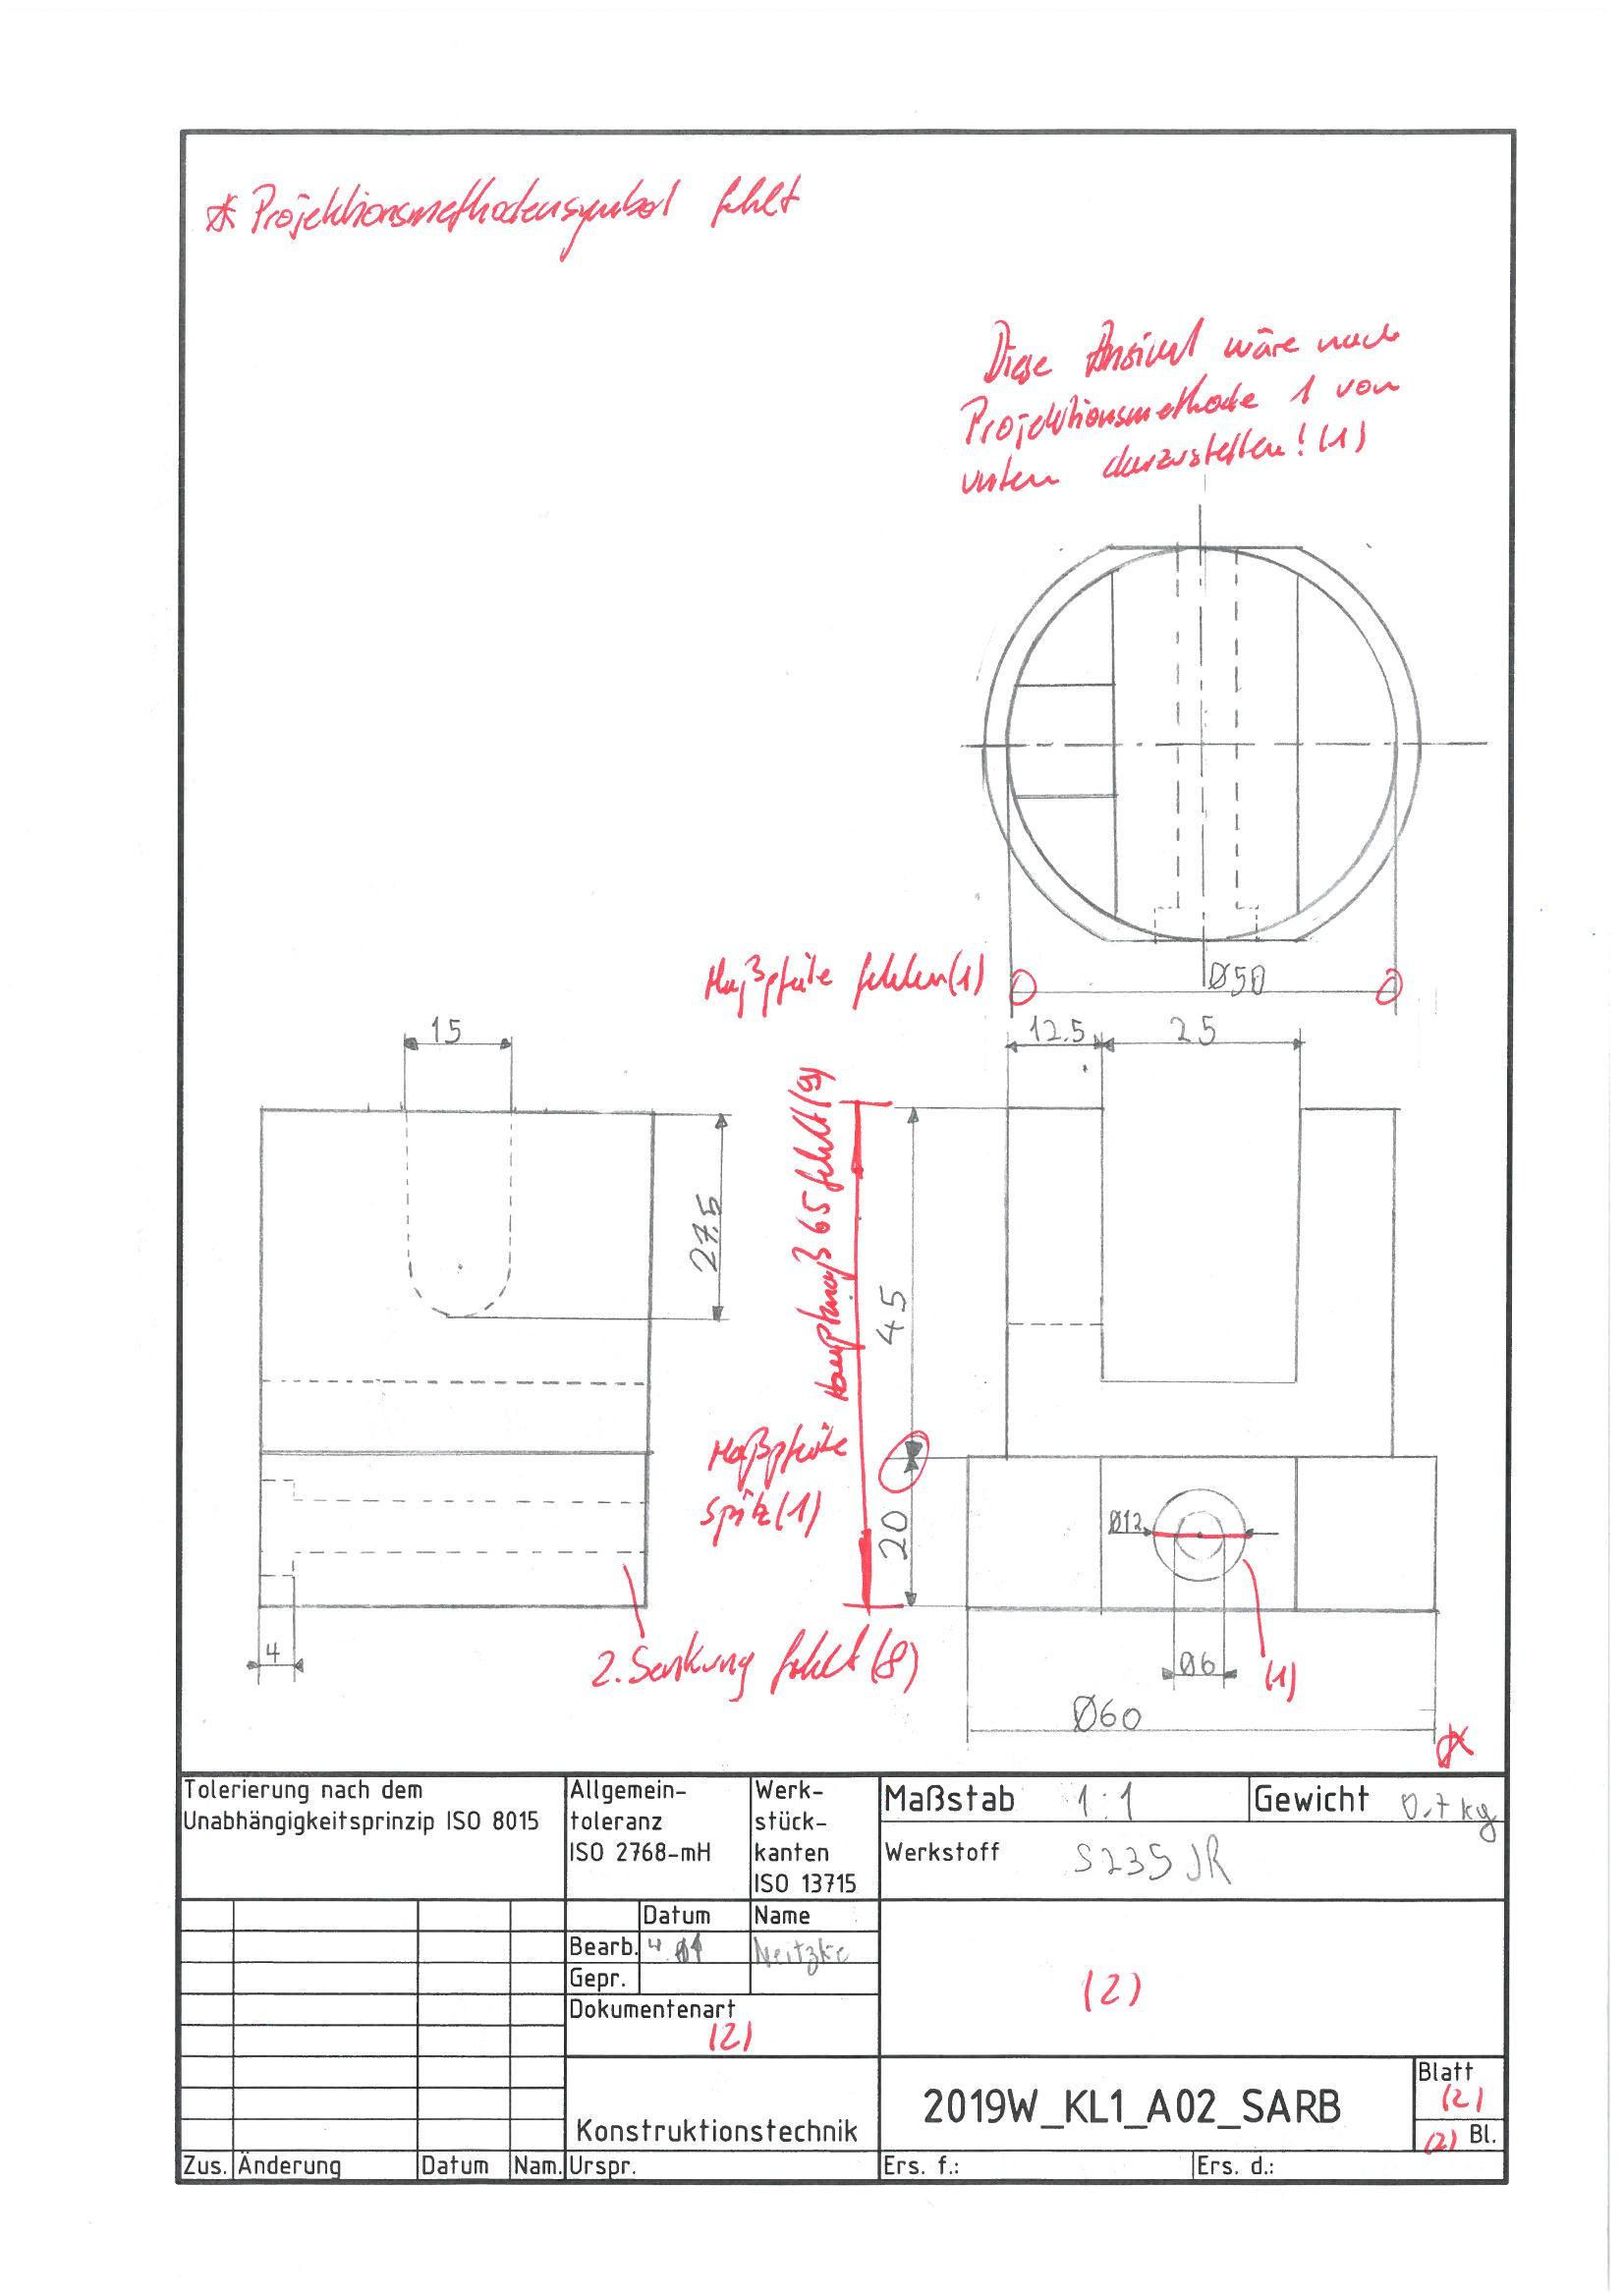 * Projektionsmethodensymbol fehlt
Diese Ansicht wäre nach
Projektionsmethode 1 von
unten darzustellen! (1)
Maßpfeile fehlen (1)
Ø50
15
12.5
25
27.5
Hauptmaß 65 fehlt (9)
45
Maßpfeile
spitz (1)
20
Ø12
4
2. Senkung fehlt (8)
Ø6
(1)
Ø60
*
Tolerierung nach dem
Unabhängigkeitsprinzip ISO 8015
Allgemein-
toleranz
ISO 2768-mH
Werk-
stück-
kanten
ISO 13715
Maßstab 1:1
Gewicht 0.7 kg
Werkstoff S235JR
Datum Name
Bearb. Neitzke
Gepr.
Dokumentenart
(2)
(2)
Konstruktionstechnik
2019W_KL1_A02_SARB
Blatt
(2)
(2) Bl.
Zus. Änderung Datum Nam. Urspr. Ers. f.: Ers. d.: